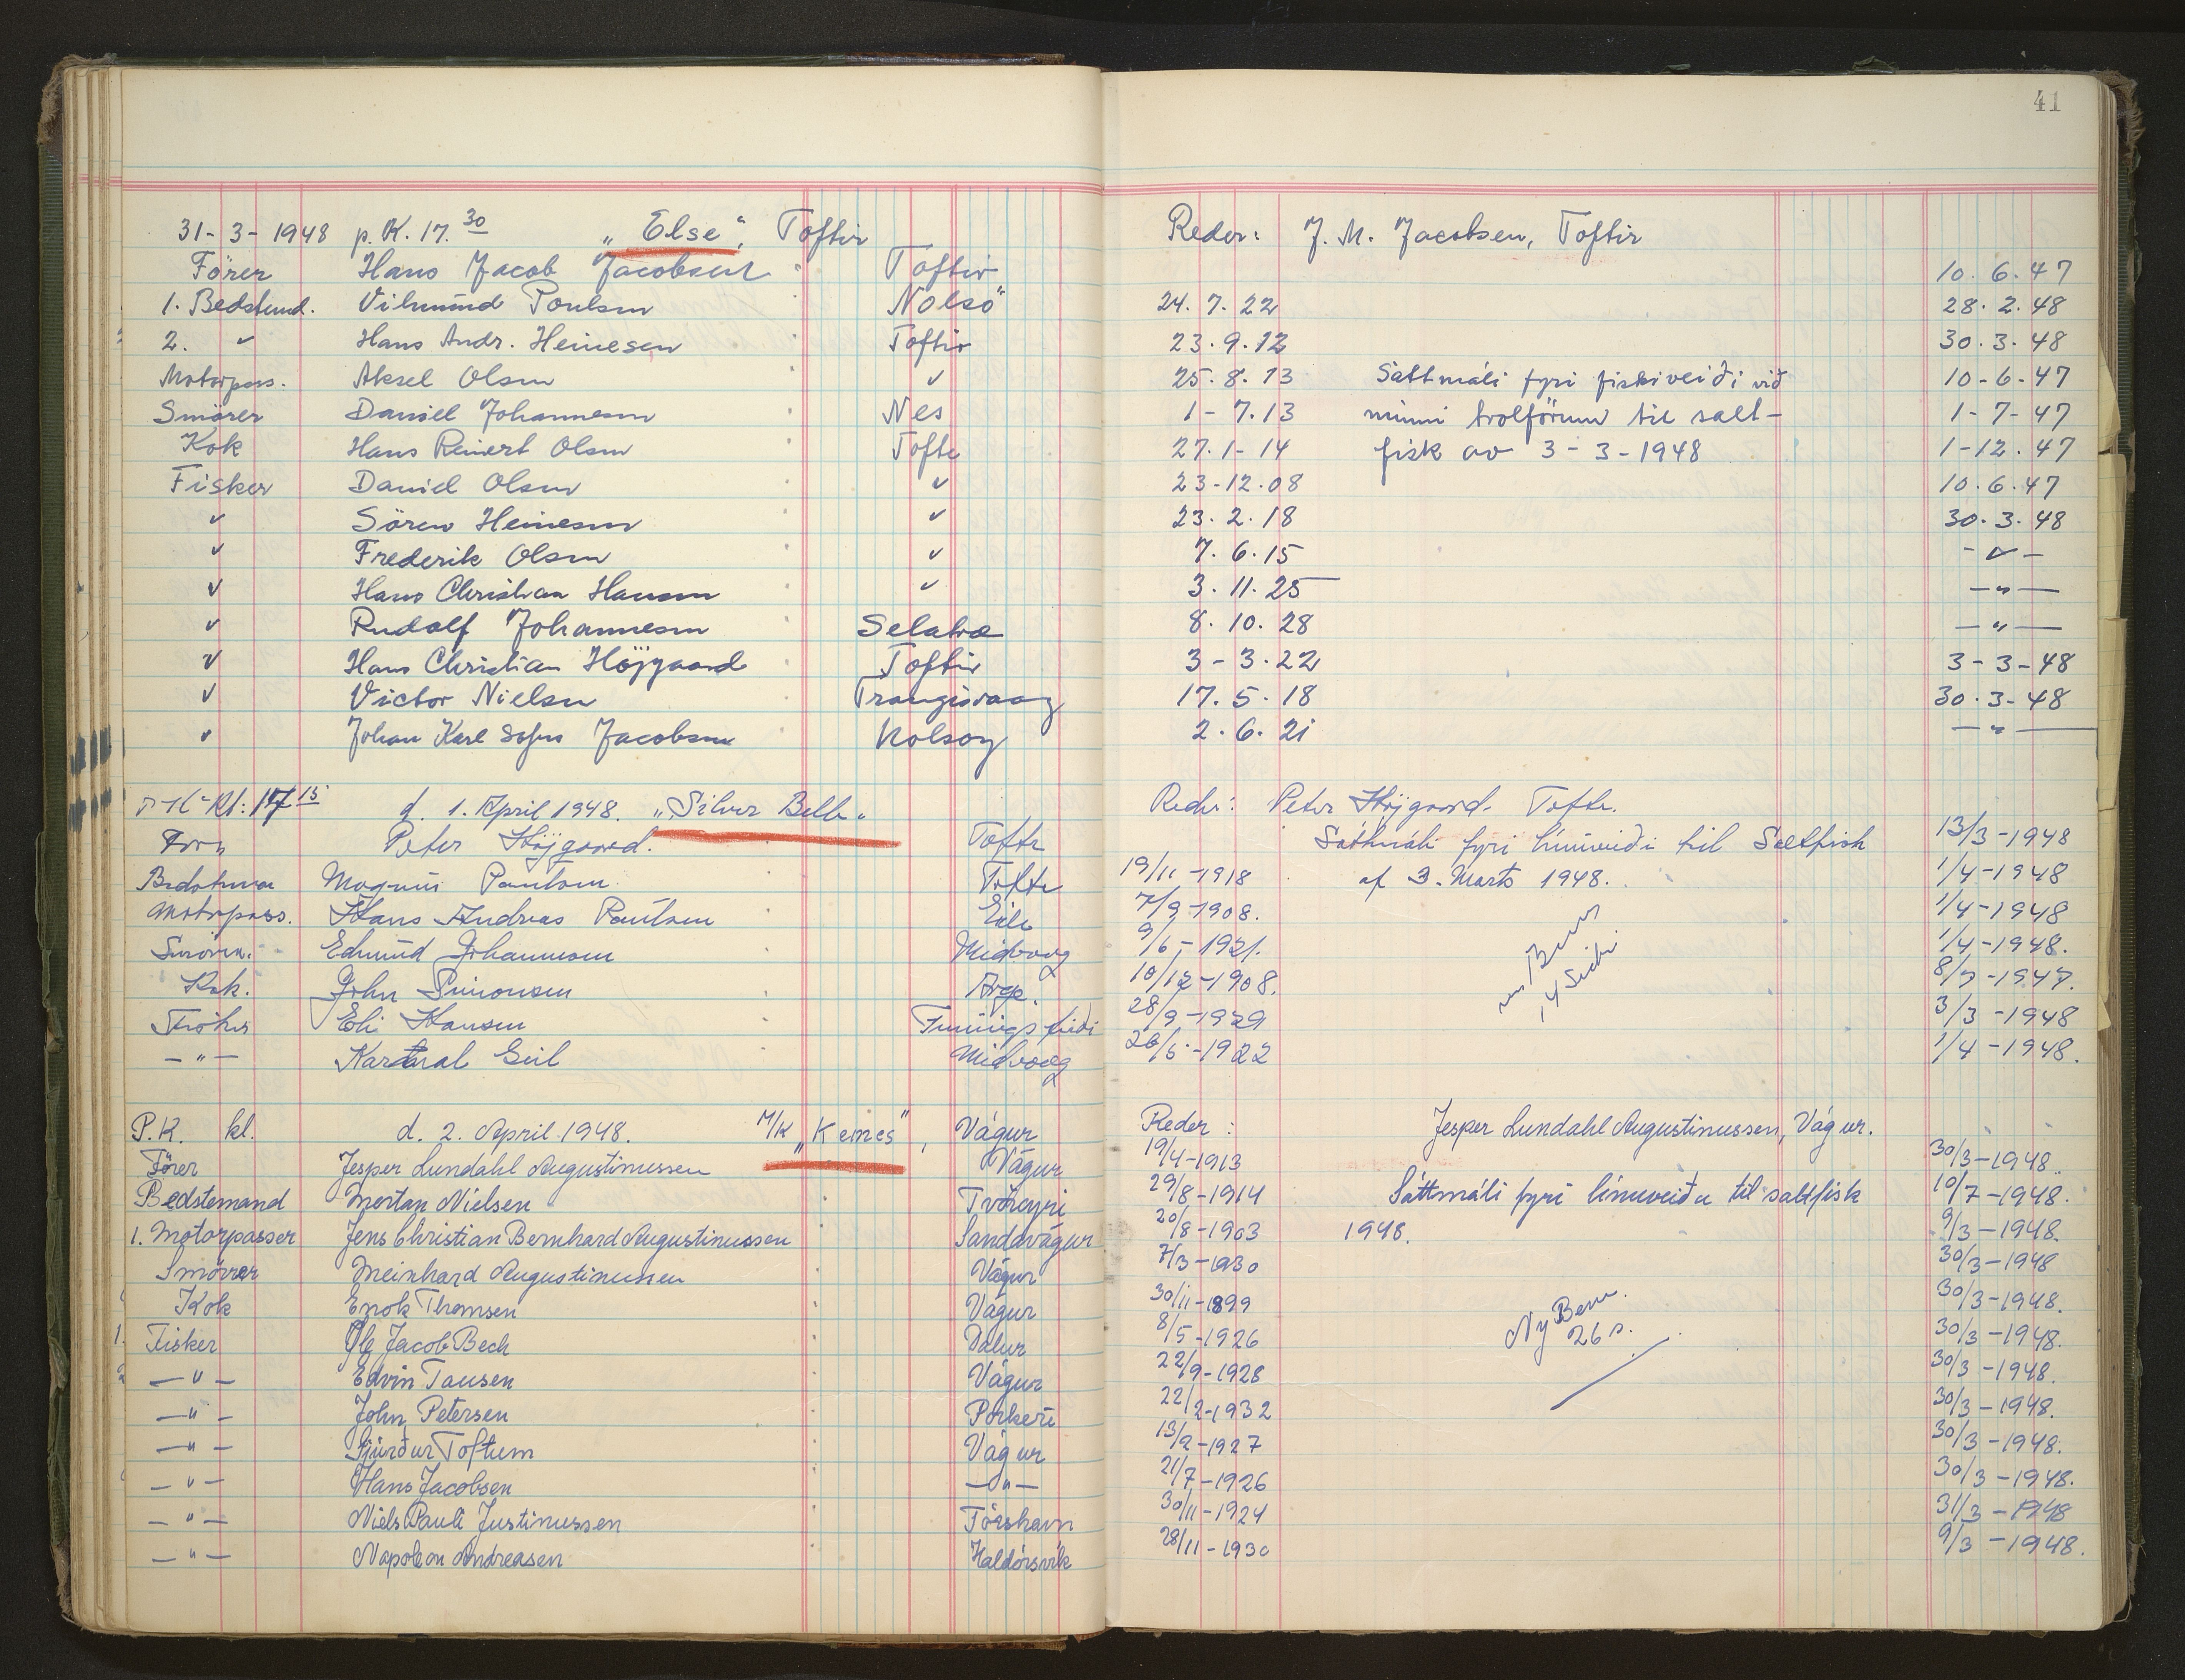 41
31-3-1948 p.K. 17.30 „Else“, Toftir Reder: J. M. Jacobsen, Toftir
Förer Hans Jacob Jacobsen Toftir 10.6.47
1. Bedstemd. Vilmund Poulsen Nolsö 24.7.22 28.2.48
2. " Hans Andr. Heinesen Toftir 23.9.12 30.3.48
Motorpass. Aksel Olsen " 25.8.13 Sáttmáli fyri fiskiveiði við 10-6-47
Smörer Daniel Johannesen Nes 1-7.13 minni trolförum til salt- 1-7-47
Kok Hans Reinert Olsen Tofte 27.1-14 fisk av 3-3-1948 1-12.47
Fisker Daniel Olsen " 23-12.08 10.6.47
" Sören Heinesen " 23.2.18 30.3.48
" Frederik Olsen " 7.6.15 -"-
" Hans Christian Hansen " 3.11.25 -"-
" Rudolf Johannesen Selatræ 8.10.28 -"-
" Hans Christian Höjgaard Toftir 3-3.22 3-3-48
" Victor Nielsen Trangisvaag 17.5.18 30.3-48
" Johan Karl Sofus Jacobsen Nolsoy 2.6.21 -"-
Kl: 17 15 d. 1. April 1948. „Silver Belle“ Reder: Peter Höjgaard. Tofte.
Peter Höjgaard. Tofte Sáttmáli fyri línuveiði til Saltfisk 13/3-1948
Bedstemand Magnus Poulsen Tofte 19/11-1918 af 3. Marts 1948. 1/4-1948
Motorpass. Hans Andreas Poulsen Eide 7/9-1908. 1/4-1948
Smörer. Edmund Johannesen Midvaag 9/6-1921. 1/4-1948.
Kok. John Simonsen Arge. 10/12-1908. 8/7-1947.
Eli Hansen Funningsfirði 28/9-1929 3/3-1948
-"- Kardinal Geil Midvaag 26/5-1922 1/4-1948.
P.K. kl. d. 2. April 1948. M/K „Kemes“, Vágur Reder: Jesper Lundahl Augustinussen, Vágur.
Förer Jesper Lundahl Augustinussen Vágur 19/4-1913 30/3-1948.
Bedstemand Mortan Nielsen Tvöroyri 29/8-1914 Sáttmáli fyri línuveiðu til saltfisk 10/7-1948.
1. Motorpasser Jens Christian Bernhard Augustinussen Sandavágur 20/8-1903 1948. 9/3-1948.
Smörer Meinhard Augustinussen Vágur 7/3-1930 30/3-1948
Kok Enok Thomsen Vágur 30/11-1899 30/3-1948.
Fisker Ole Jacob Bech Dalur 8/5-1926 Ny Bem. 26 s. 30/3-1948.
-"- Edvin Tausen Vágur 22/9-1928 30/3-1948.
-"- John Petersen Porkeri 22/2-1932 30/3-1948.
-"- Sjúrður Toftum Vágur 13/2-1927 30/3-1948.
-"- Hans Jacobsen -"- 21/7-1926 30/3-1948.
-"- Niels Pauli Justinussen Tórshavn 30/11-1924 31/3-1948
-"- Napoleon Andreasen Haldórsvík 28/11-1930 9/3-1948.